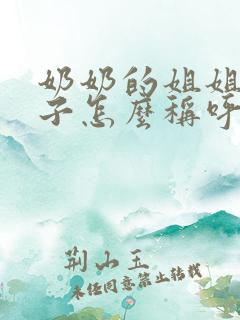 奶奶的姐姐
子怎麽稱呼
荆山玉
未经同意禁止转载